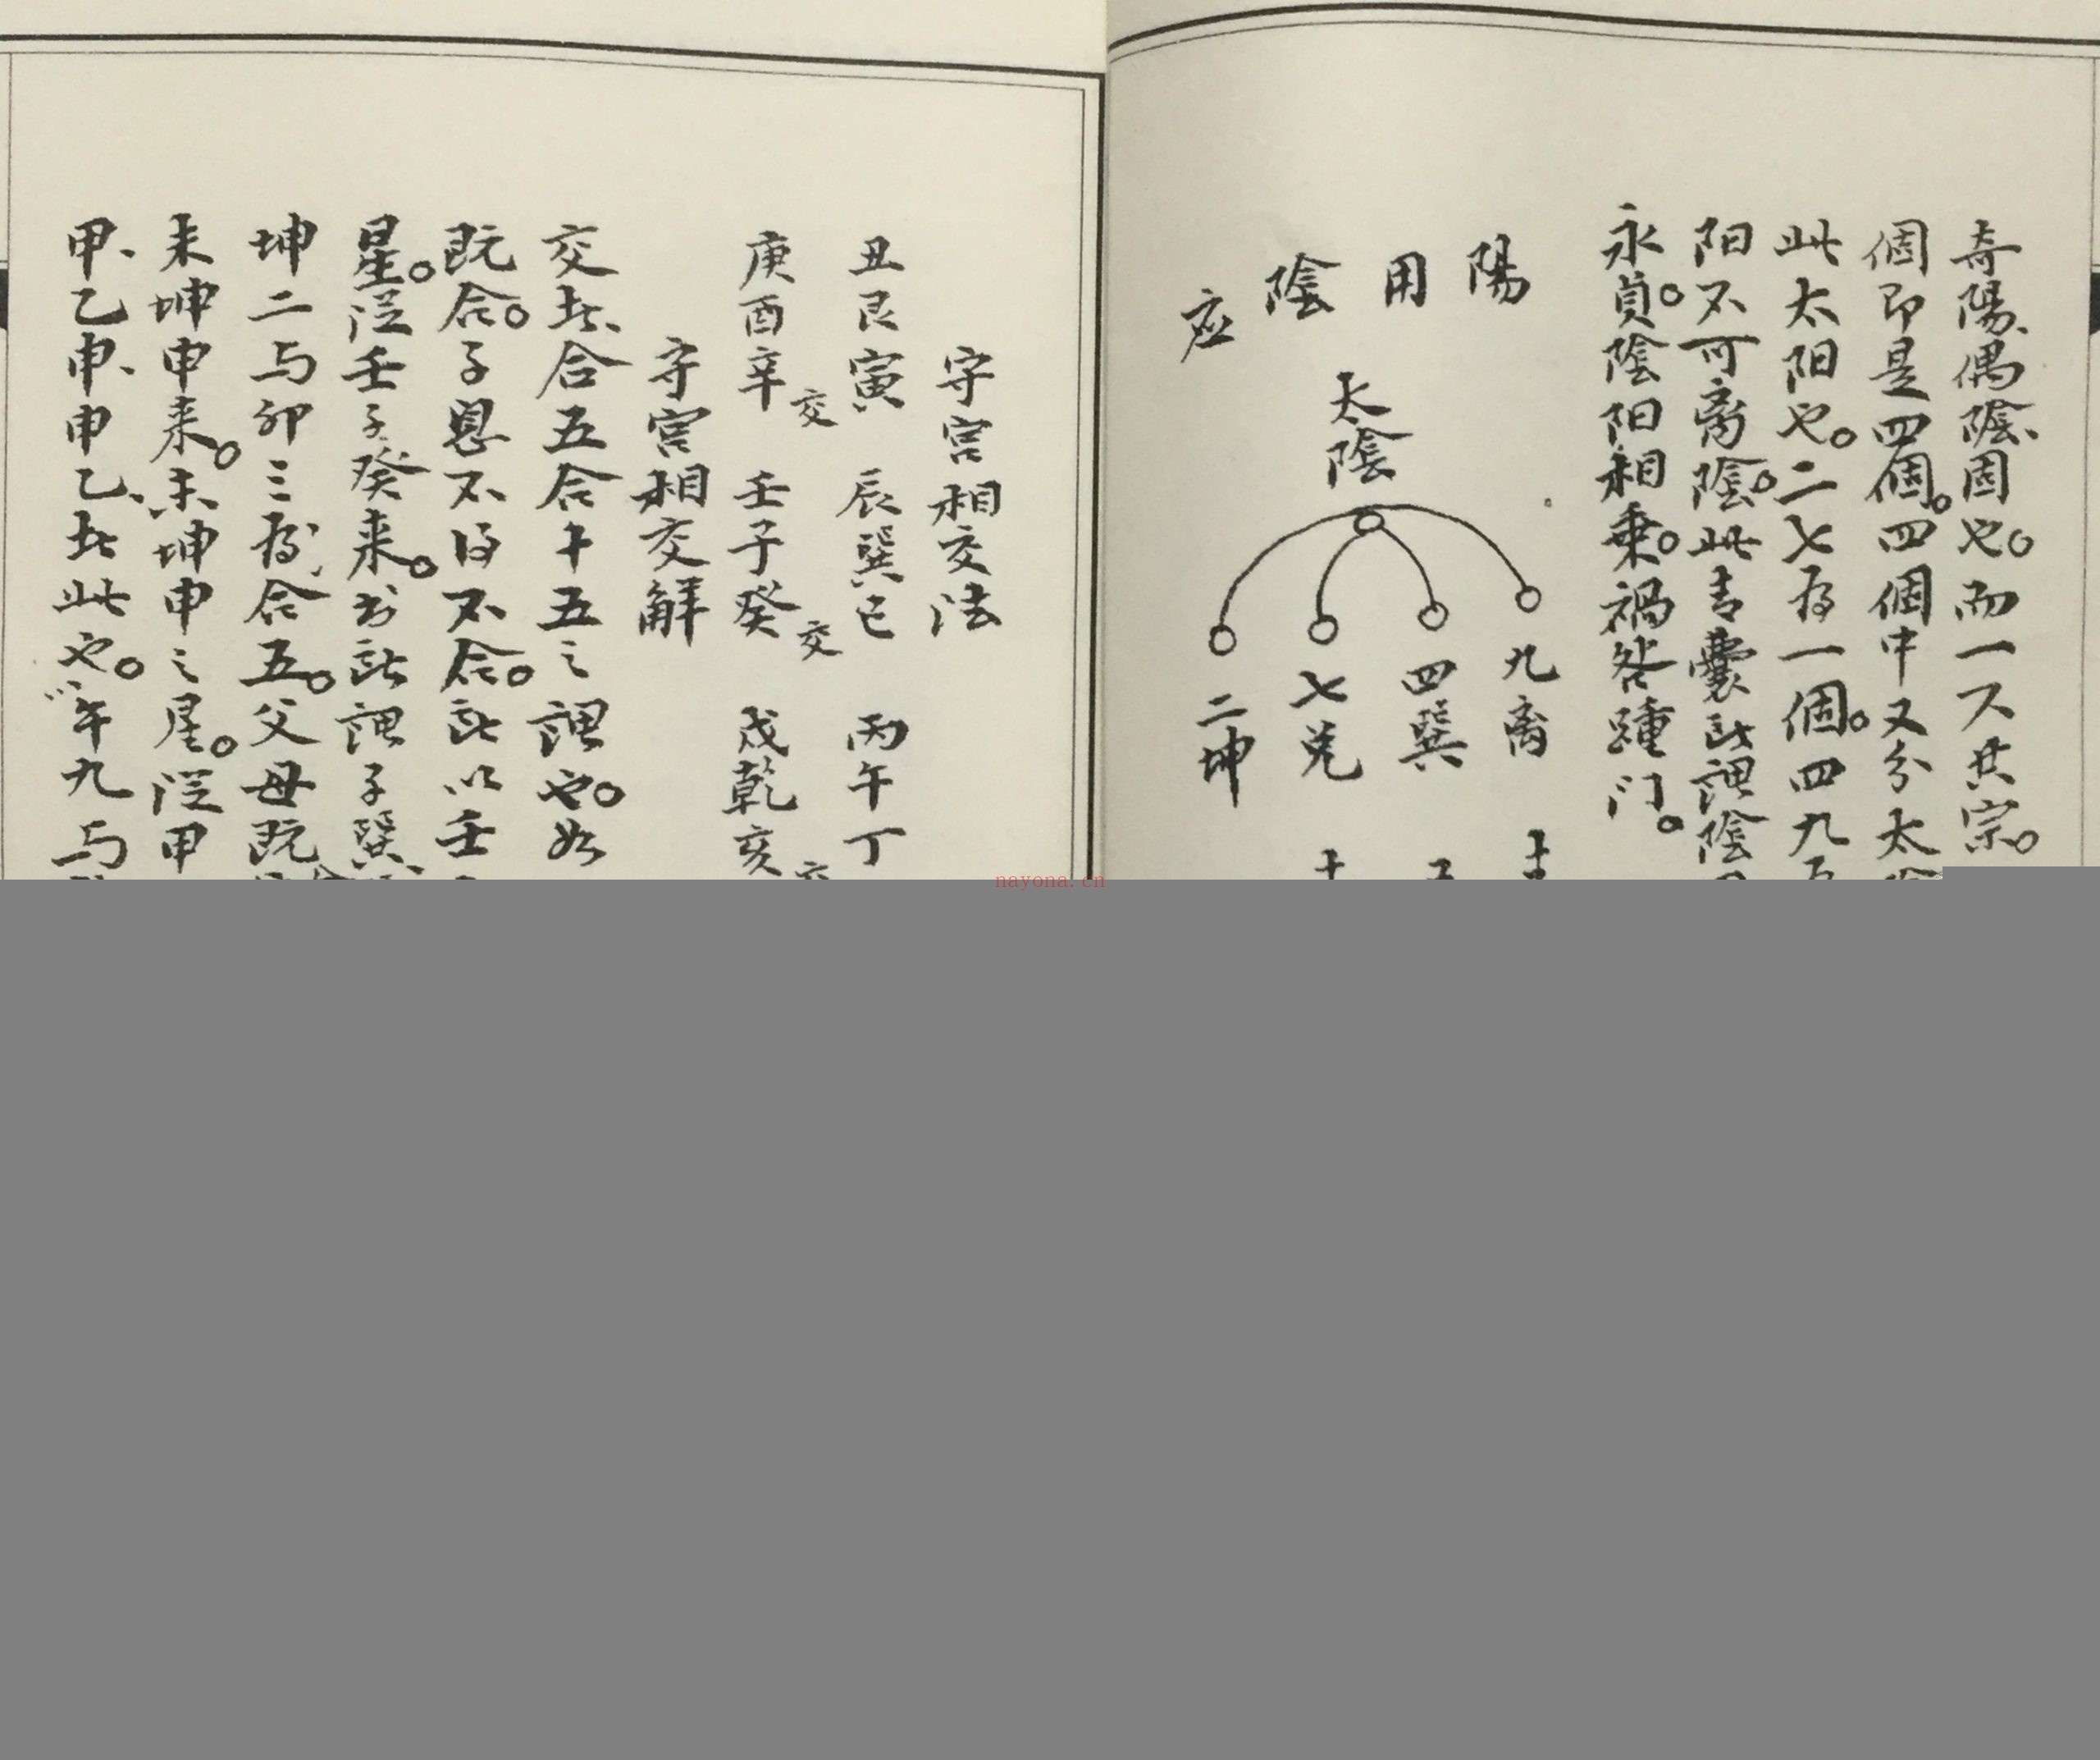 奇陽、偶陰、固也。而一六共宗。
個即是四個。四個中又分太陰
此太阳也。二七為一個。四九為
阳不可离陰。此青囊所謂陰
永貞。陰阳相乘。禍咎踵门。
陽用陰应
太陰
九离
四巽
七兑
二坤
守宫相交法
丑艮寅 辰巽巳 丙午丁
庚酉辛交 壬子癸交 戌乾亥交
守宫相交解
交者、合五合十五之謂也。如
既合。子息不得不合。所以壬
星。從壬子癸来。書所謂子巽、
坤二与卯三為、合五。父母既
未坤申来。未坤申之星。從甲
甲、乙申、申乙、者此也。午九与
nayona.cn